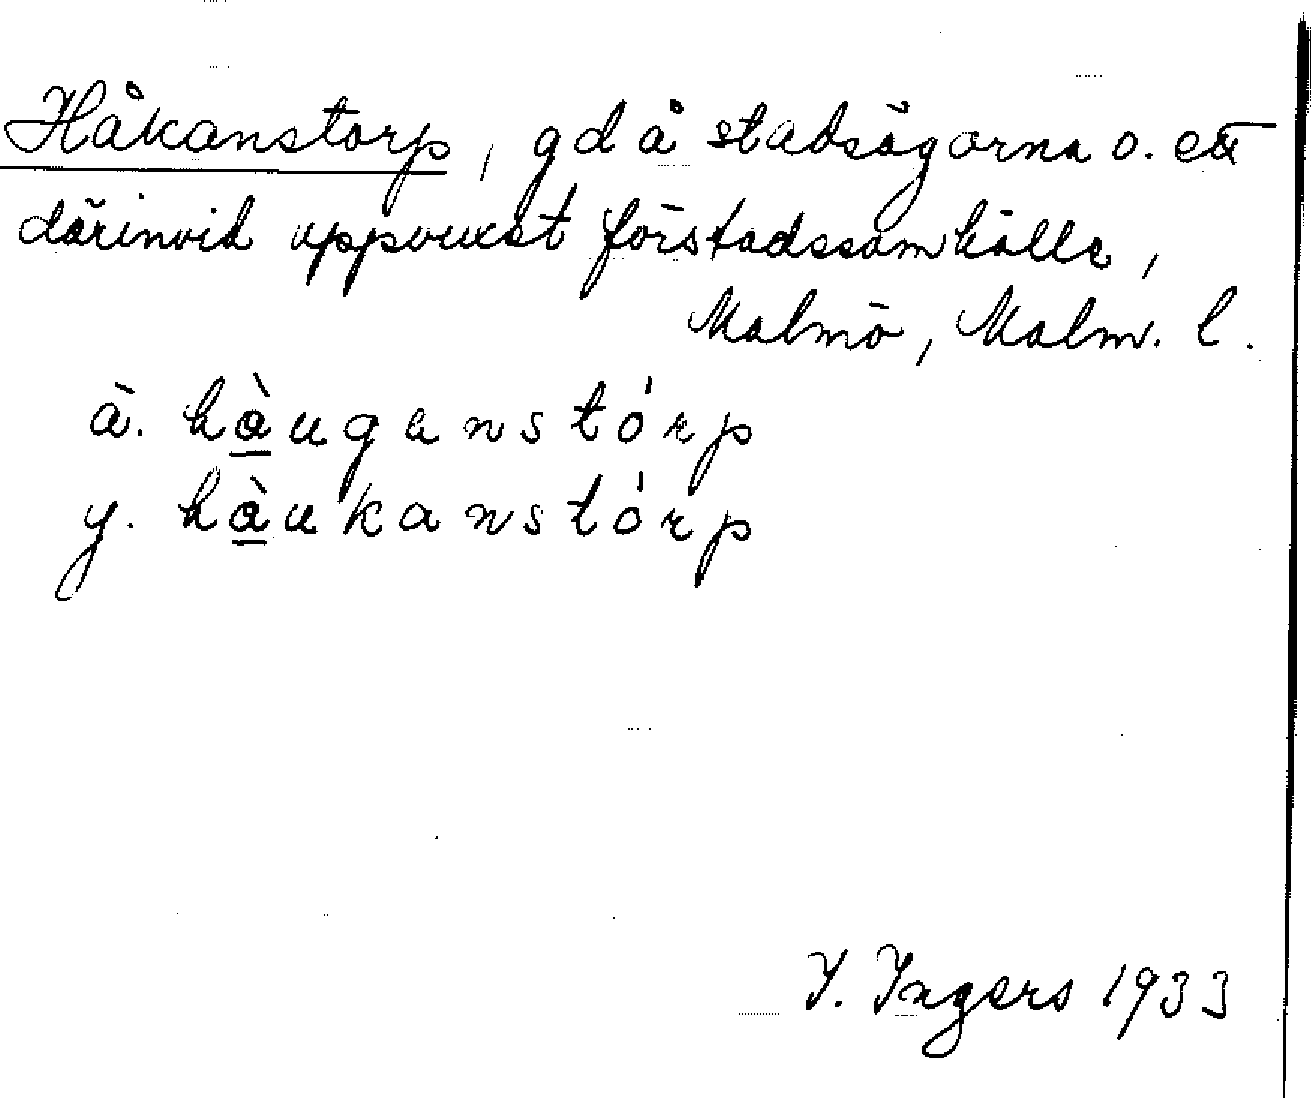 Håkanstorp, gd å stadsägorna o. ett
därinvid uppvuxet förstadssamhälle,
Malmö, Malm. l.
ä. hàuganstórp
y. hàukanstórp
I. Ingers 1933